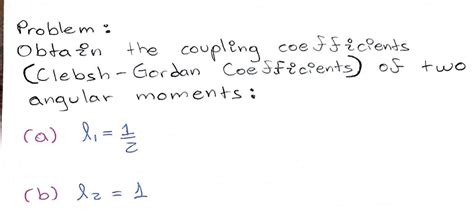 Problem:
Obtain the coupling coefficients
(Clebsh-Gordan Coefficients) of two
angular moments:
(a) l₁ = 1/2
(b) l₂ = 1